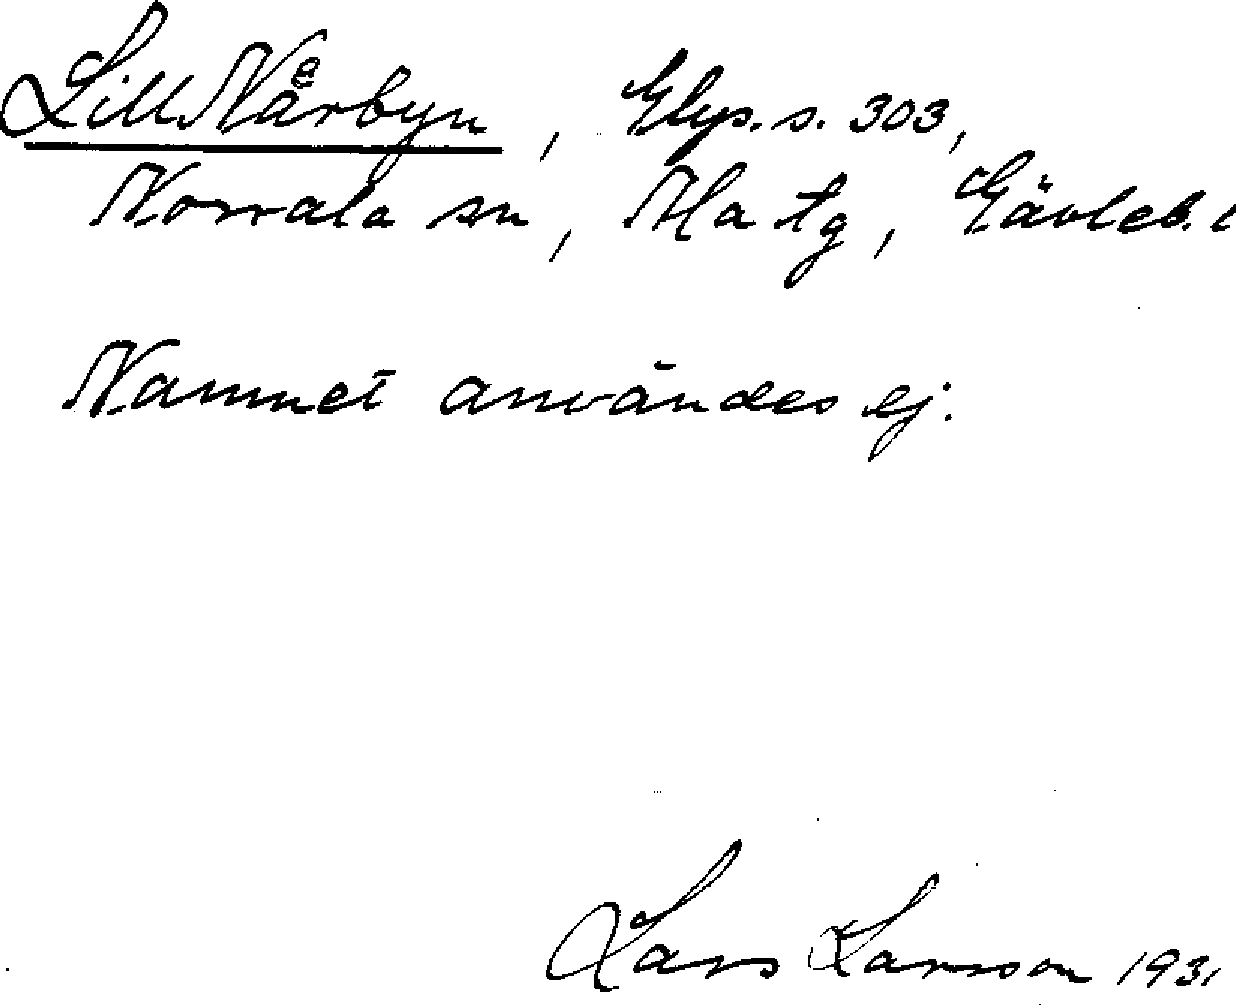 Lill Närbyn, Glys. s. 303,
Norrala sn, Ala tg, Gävleb. l
Namnet användes ej.
Lars Larsson 1931